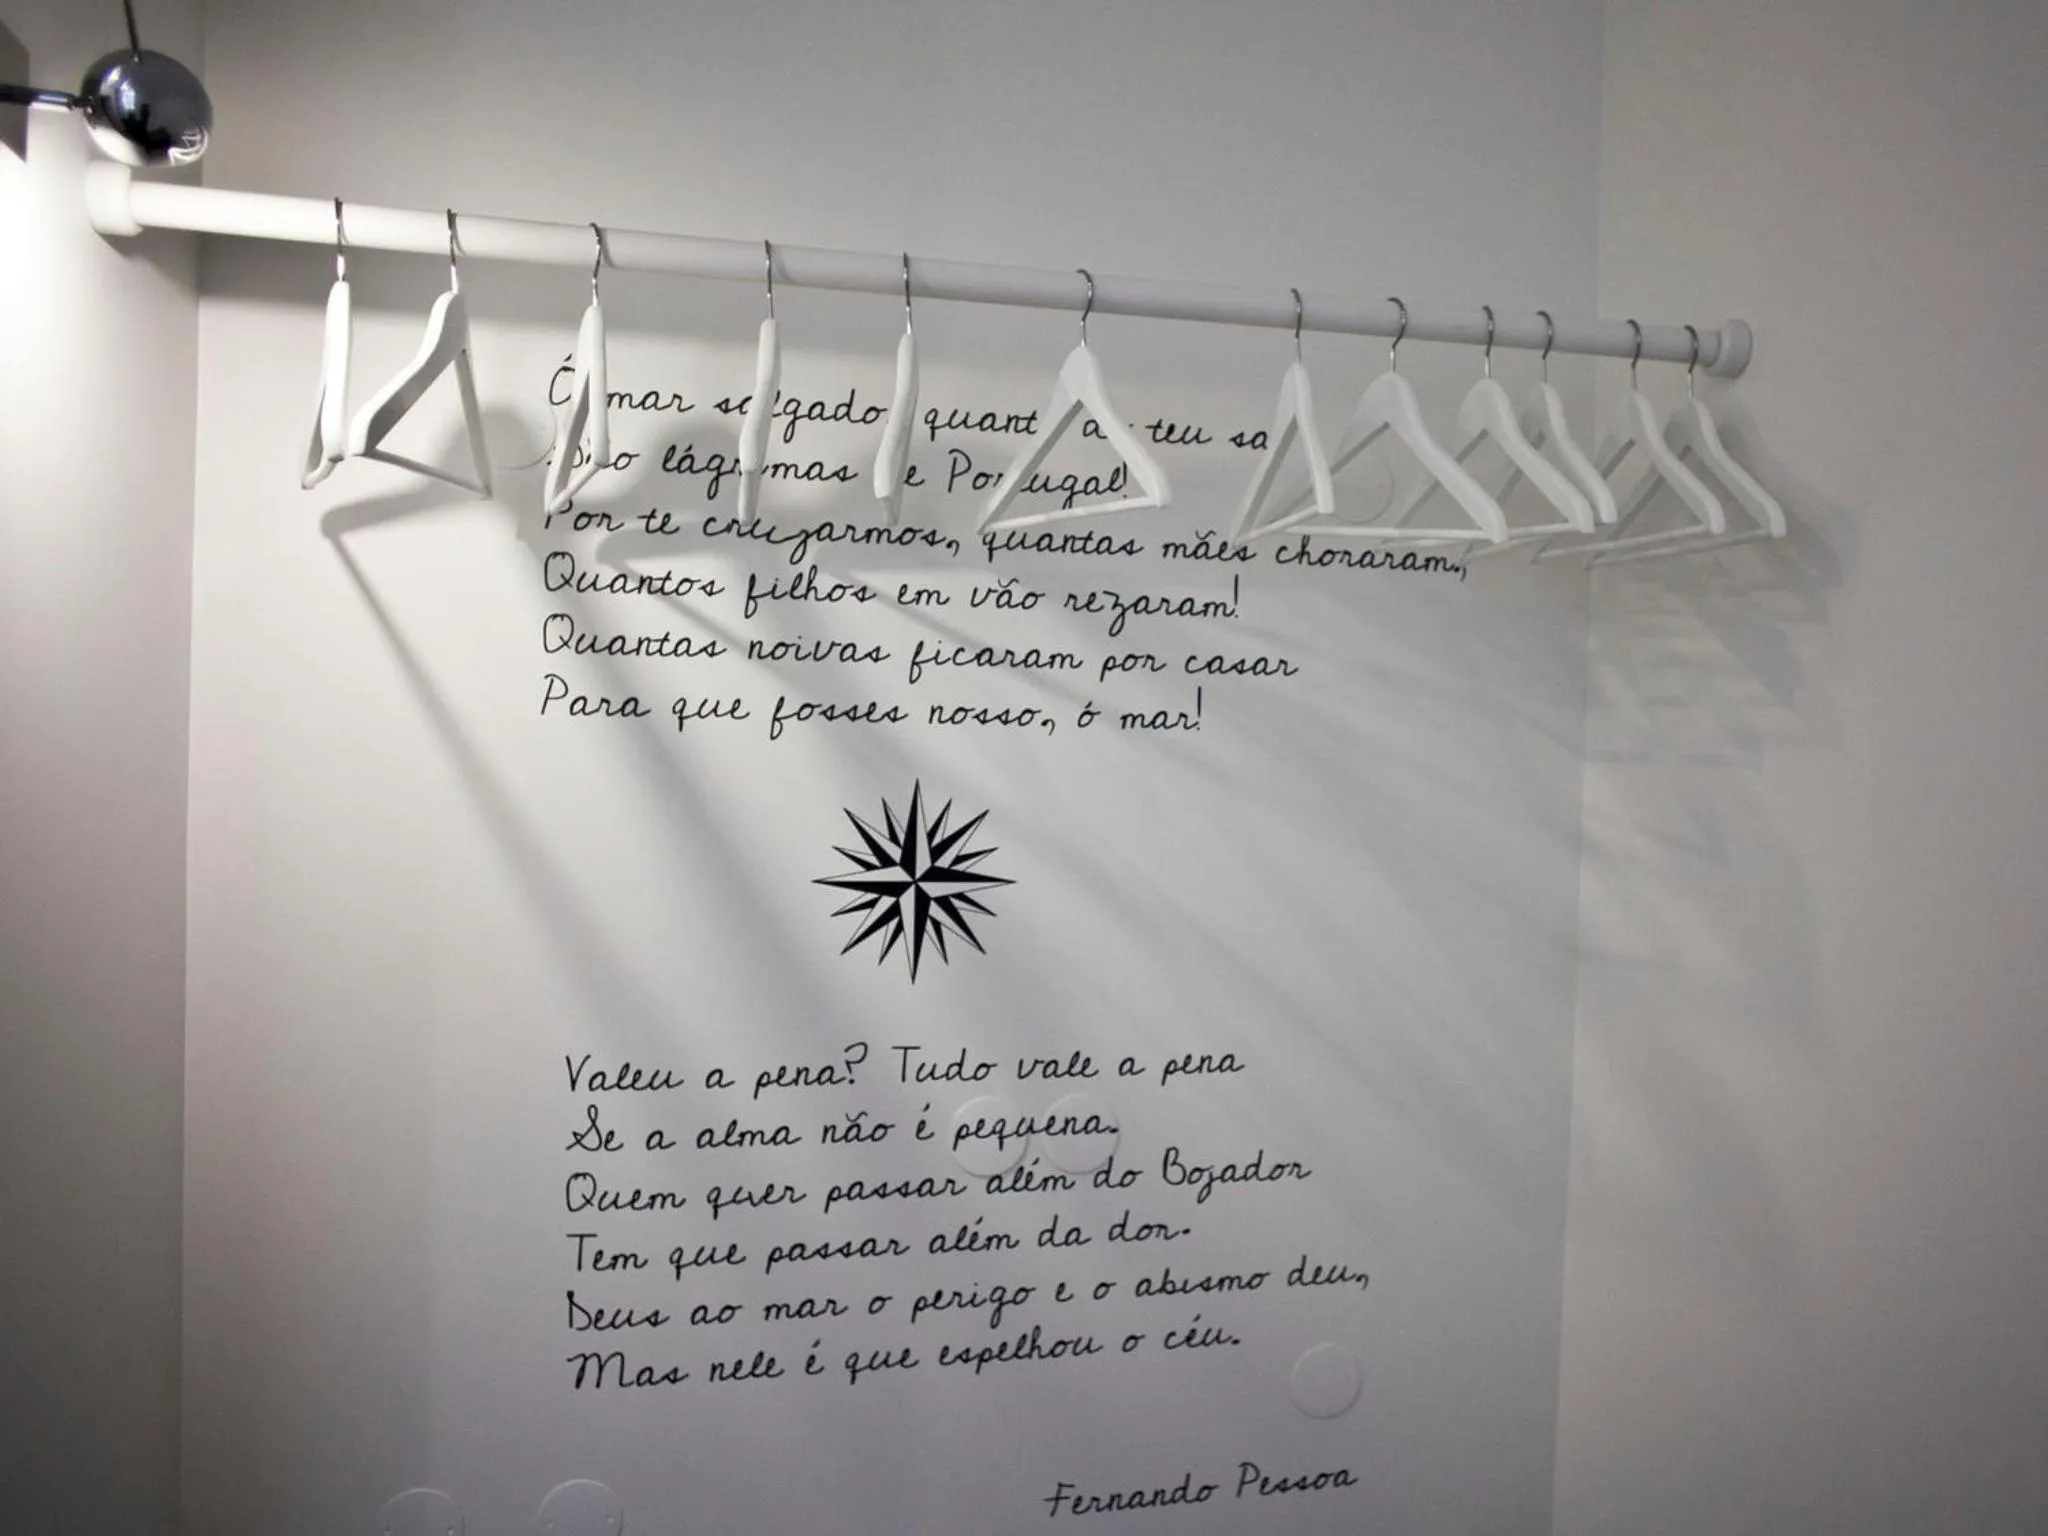 Ó mar salgado, quanto do teu sal
São lágrimas de Portugal!
Por te cruzarmos, quantas mães choraram,
Quantos filhos em vão rezaram!
Quantas noivas ficaram por casar
Para que fosses nosso, ó mar!
Valeu a pena? Tudo vale a pena
Se a alma não é pequena.
Quem quer passar além do Bojador
Tem que passar além da dor.
Deus ao mar o perigo e o abismo deu,
Mas nele é que espelhou o céu.
Fernando Pessoa